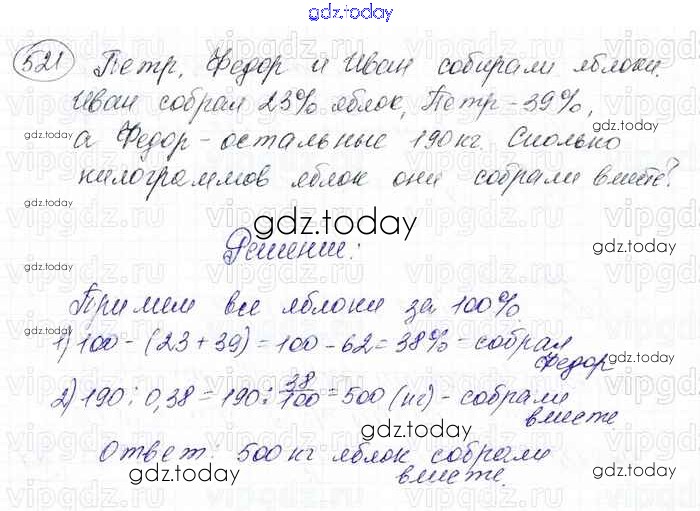 gdz.today
521 Петр, Федор и Иван собирали яблоки.
Иван собрал 23% яблок, Петр - 39%,
gdz.today
gdz.today
а Федор - остальные 190 кг. Сколько
килограммов яблок они собрали вместе?
gdz.today
gdz.today
gdz.today
Решение:
gdz.today
gdz.today
Примем все яблоки за 100%.
1) 100 - (23 + 39) = 100 - 62 = 38% - собрал
Федор
gdz.today
gdz.today
2) 190 : 0,38 = 190 : 38/100 = 500 (кг) - собрали
вместе
gdz.today
gdz.today
Ответ: 500 кг яблок собрали
вместе.
gdz.today
gdz.today